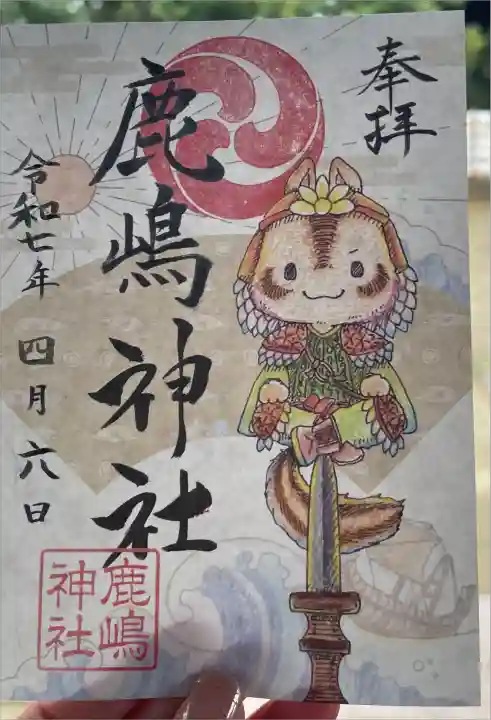 奉拝
鹿嶋神社
令和七年 四月六日
鹿嶋
神社